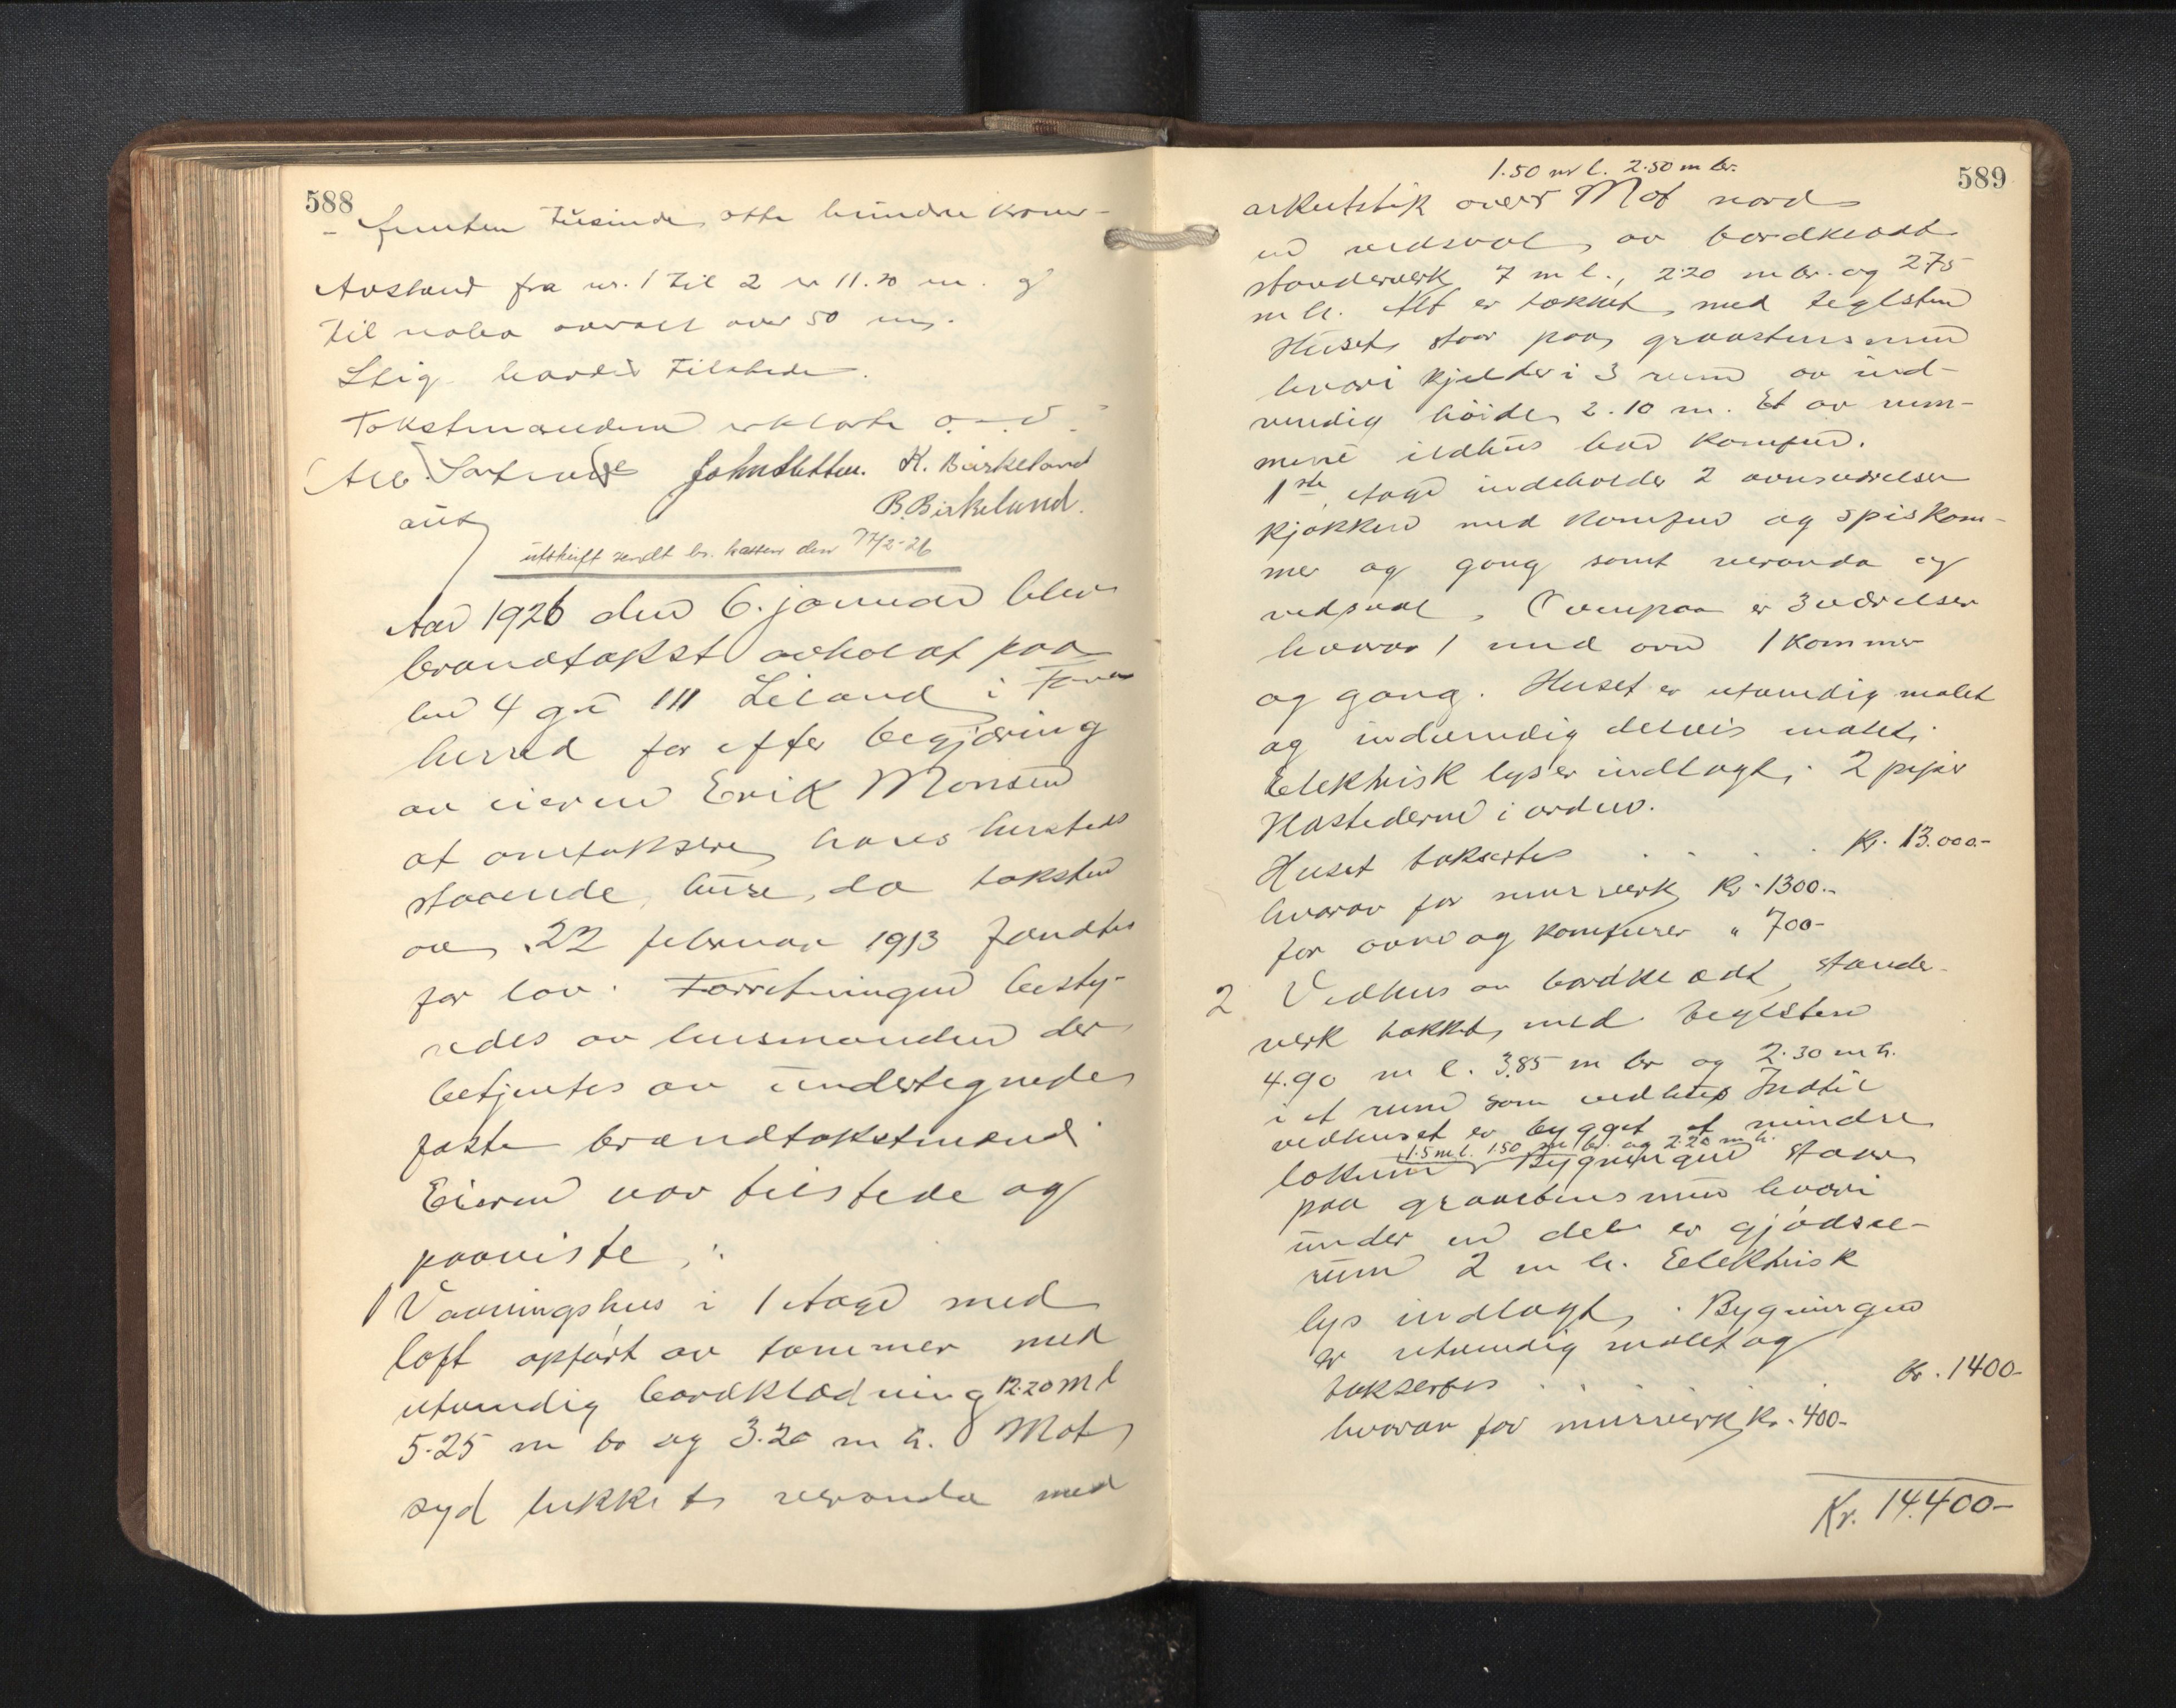 588
- femten tusinde otte hundre kroner -
Avstand fra nr. 1 til 2 er 11.20 m. og
til nabo overalt over 50 m.
Stig haves tilstede.
Takstmændene erklærte
John Sletten. K. Birkeland
B. Birkeland.
utskrift sendt br. kassen den 17/2-26
Aar 1926 den 6. januar blev
brandtakst avholdt paa
bn 4 gn 111 Liland i Fana
herred for efter begjæring
av eieren Erik Monsen
at omtaksere hans husteds
staaende huse, da taksten
av 22 februar 1913 fandtes
for lav. Forretningen besty-
redes av lensmanden der
betjentes av undertegnede
faste brandtakstmænd
Eieren var tilstede og
paaviste:
1 Vaaningshus i 1 etage med
loft opført av tømmer med
utvendig bordklædning 12.20 m l
5.25 m br og 3.20 m h. Mot
syd lukket veranda med
589
1.50 m l. 2.50 m br.
arkutstik over Mot nord
en vedsval av bordklædt
stenderverk 7 m l., 2.20 m br. og 2.75
m h. Alt er tækket med teglsten
Huset staar paa graastensmur
hvori kjelder i 3 rum av ind-
vendig høide 2.10 m. Et av rum-
mene ildhus har komfur.
1ste etage indeholder 2 ovnsværelser
kjøkken med komfur og spiskam-
mer og gang samt veranda og
vedsval. Ovenpaa er 3 værelser
hvorav 1 med ovn 1 kammer
og gang. Huset er utvendig malet
og indvendig delvis malet.
Elektrisk lys er indlagt. 2 piper
Ildstederne i orden.
Huset takseres . . . Kr. 13.000.-
hvorav for murverk Kr. 1300.-
for ovne og komfurer " 700-
2 Vedhus av bordklædt stender-
verk tækket med teglsten
4.90 m l. 3.85 m br og 2.30 m h.
i et rum som vedhus Indtil
vedhuset er bygget et mindre
1.5 m l. 1.50 m br. og 2.20 m h.
lokum Bygningen staar
paa graastensmur hvori
under en del er gjødsel-
rum 2 m h. Elektrisk
lys indlagt. Bygningen
er utvendig malet og
takseres . . . Kr. 1400-
hvorav for murverk Kr. 400-
Kr. 14.400-